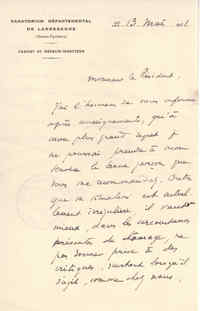 SANATORIUM DÉPARTEMENTAL
DE LANNEDARRE
CABINET DU MÉDECIN-DIRECTEUR
le 13 Mai
Monsieur le Président,
J'ai l'honneur de vous informer
après renseignements, qu'à
mon plus grand regret je
ne pourrai prendre à mon
service la jeune personne que
vous me recommandez. Outre
que sa situation est actuel-
lement irrégulière il vaudrait
mieux, dans les circonstances
présentes de chômage, ne
pas donner prise à des
critiques, surtout lorsqu'il
s'agit, comme chez nous,